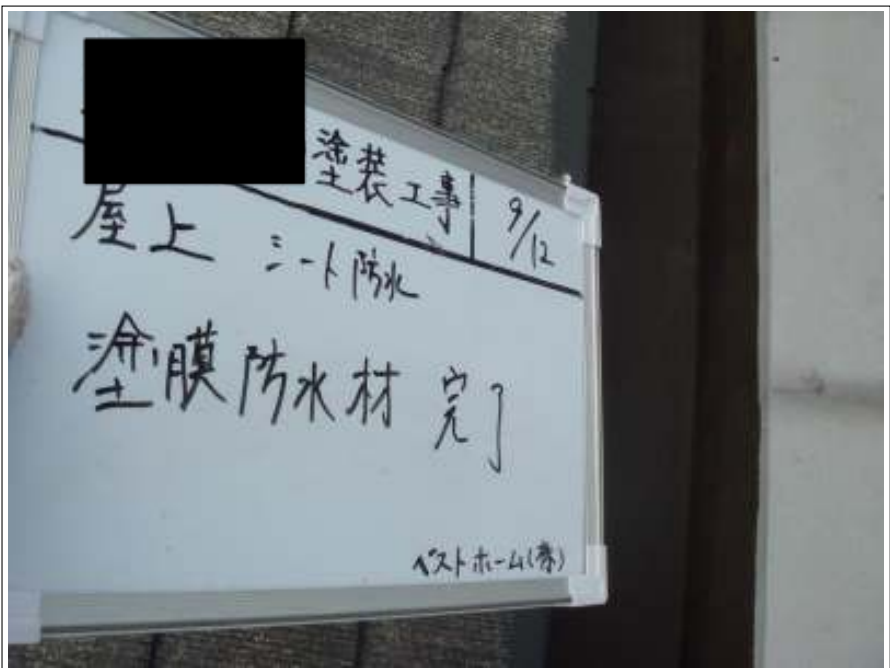 塗装工事 9/12
屋上 シート防水
塗膜防水材 完了
ベストホーム(株)